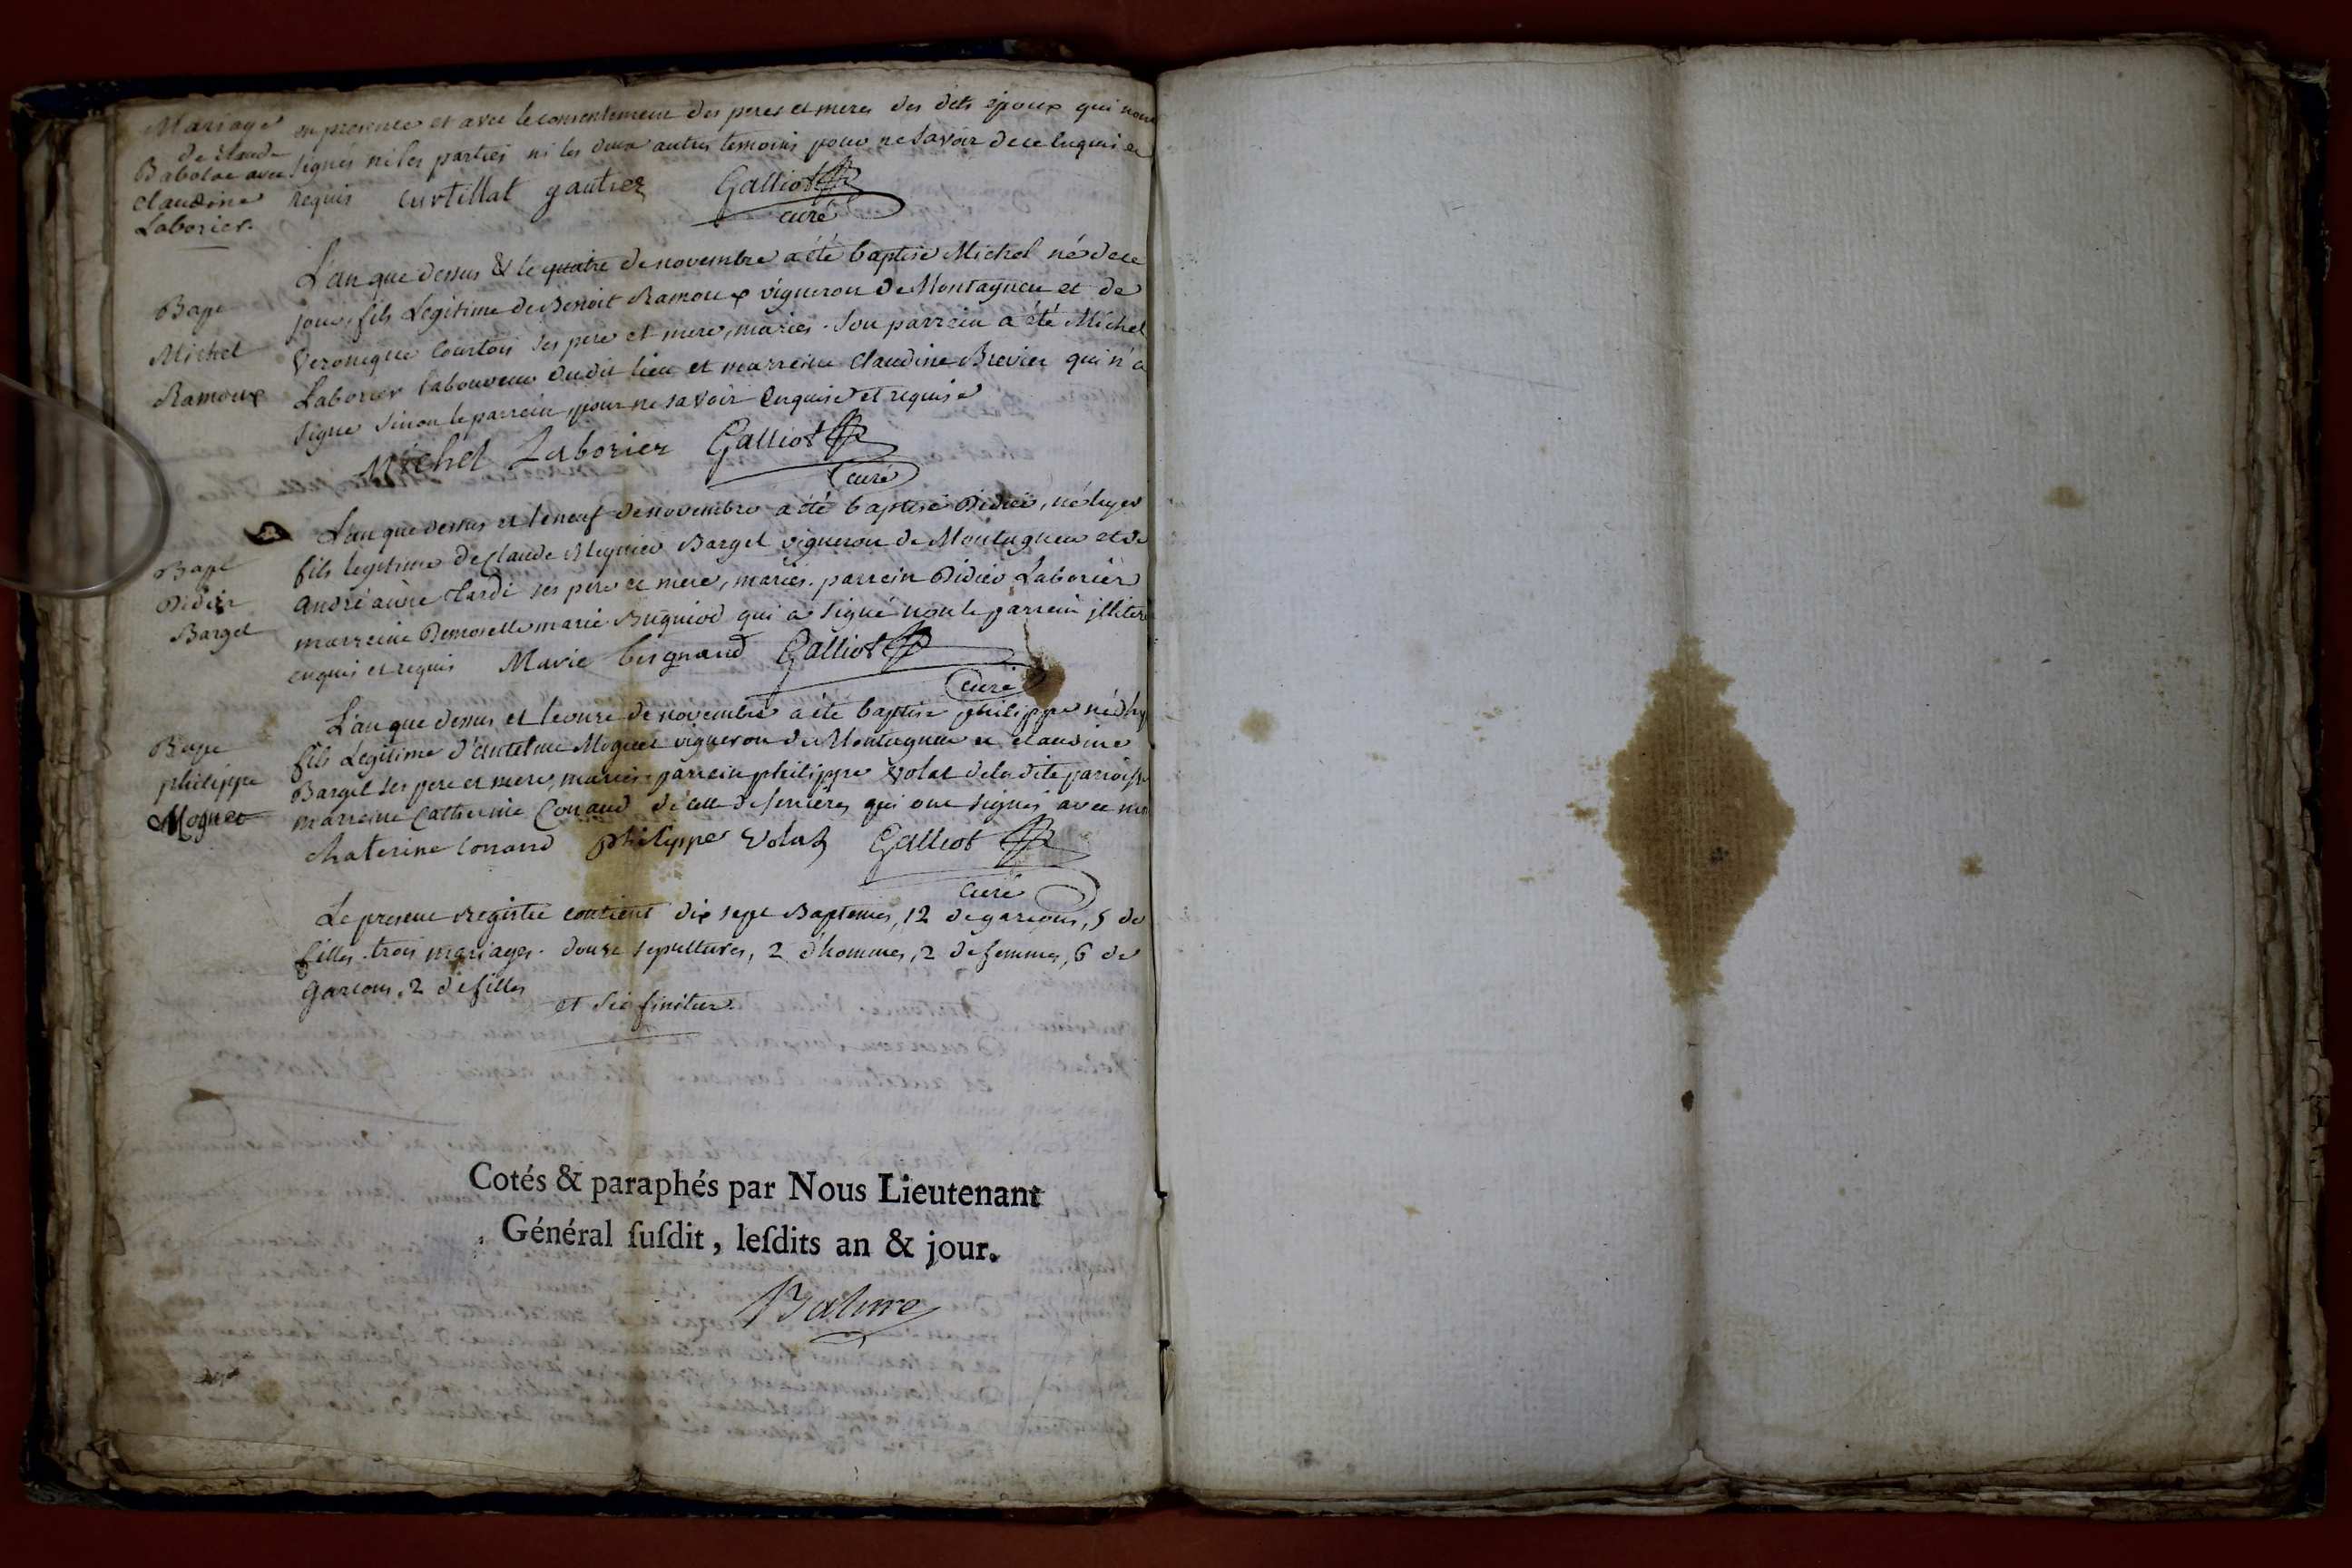 Mariage
de Claude
Babolat avec
Claudine
Laborier.
en presence et avec le consentement des peres et meres des dits époux qui n'ont
signés ni les parties ni les deux autres temoins pour ne savoir de ce enquis et
requis curtillat gautier Galliot
curé
Bapt
Michel
Ramoux
L'an que dessus & le quatre de novembre a été baptisé Michel né de ce
jour, fils Legitime de Benoit Ramoux vigneron de Montagneu et de
Veronique Courtois ses pere et mere, mariés. Son parrein a été Michel
Laborier laboureur dudit lieu et marreine Claudine Brevier qui n'a
signé sinon le parrein pour ne savoir Enquise et requise
Michel Laborier Galliot
curé
Bapt
Didier
Barget
L'an que dessus et le neuf de novembre a été baptisé Didier, né hyer
fils legitime de Claude Barget vigneron de Montagneu et de
andréanne tardi ses pere et mere, mariés. parrein Didier Laborier
marreine Demoselle marie Bugniod qui a signé non le parrein illiteré
enquis et requis Marie Galliot
curé
Bapt
philippe
Mognet
L'an que dessus et le onze de novembre a été baptisé philippe né d'hyer
fils Legitime d'Antelme Mognet vigneron de Montagneu et claudine
Barget ses pere et mere, mariés. parrein philippe Volat de la dite parroisse
marreine Catherine Conand de celle de serrieres qui ont signés avec moi
chaterine Conand philippe Volat Galliot
curé
Le present Registre contient dix sept Baptemes, 12 de garçons, 5 de
filles. trois mariages. douze sepultures, 2 d'hommes, 2 de femmes, 6 de
Garcons, 2 de filles
et sic finitur
Cotés & paraphés par Nous Lieutenant
Général ſuſdit, leſdits an & jour.